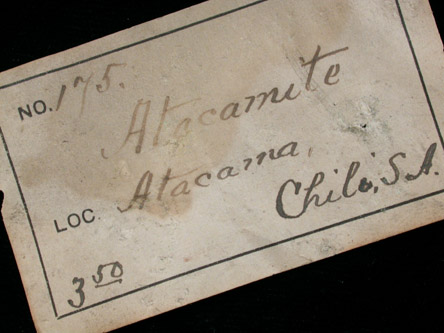 NO. 175.
Atacamite
LOC. Atacama,
Chili, S.A.
3 50